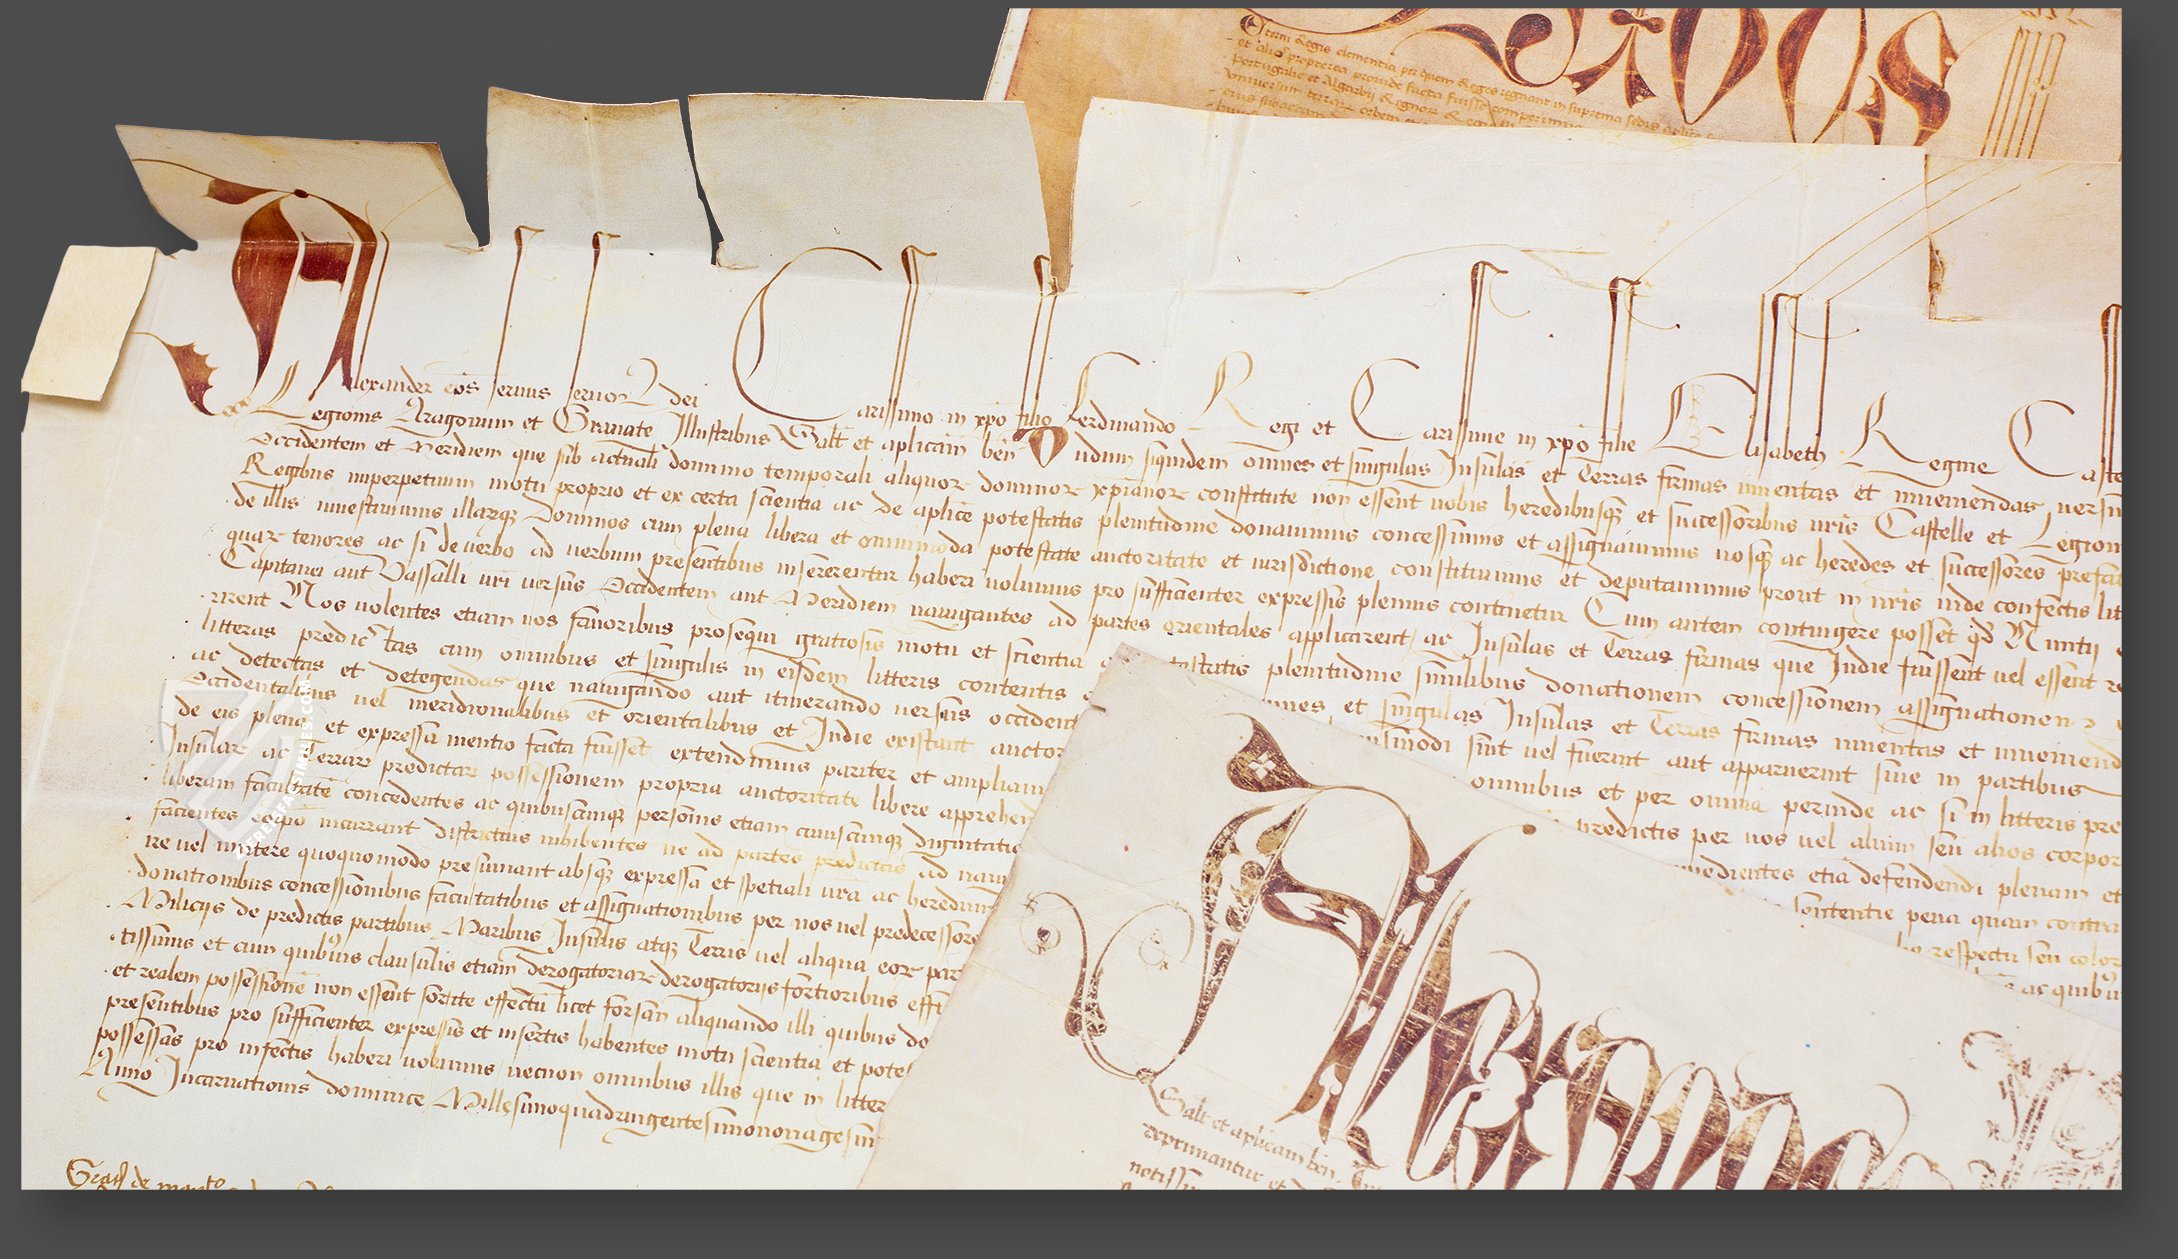 eterni Regis clementia per quam Reges regnant in suprema sedis
Portugalie et Algarbii Regnor
universum terrar orbem
Alexander eps servus servor dei Carissimo in xpo filio Ferdinando Regi et Carissime in xpo filie Elisabeth Regine Caste
Legionis Aragonum et Granate Illustribus Salt et aplicam ben Dudum siquidem omnes et singulas Insulas et Terras firmas inventas et inveniendas versus
Occidentem et Meridiem que sub actuali dominio temporali aliquor dominor xpianor constitute non essent vobis heredibusq et successoribus vris Castelle et Legion
Regibus imperpetuum motu proprio et ex certa scientia ac de aplice potestatis plenitudine donavimus concessimus et assignavimus vosq ac heredes et successores prefat
de illis investivimus illarq Dominos cum plena libera et omnimoda potestate auctoritate et iurisdictione constituimus et deputavimus prout in nris inde confectis lit
quar tenores ac si de verbo ad verbum presentibus insererentur haberi volumus pro sufficienter expressis plenius continetur Cum autem contingere posset qd Nuntii
Capitanei aut Vassalli vri versus Occidentem aut Meridiem navigantes ad partes orientales applicarent ac Insulas et Terras firmas que Indie fuissent vel essent re
rirent Nos volentes etiam vos favoribus prosequi gratiosis motu et scientia plenitudine similibus donationem concessionem assignationem
litteras predictas cum omnibus et singulis in eisdem litteris contentis et singulas Insulas et Terras firmas inventas et inveniend
ac detectas et detegendas que navigando aut itinerando versus occident sint vel fuerint aut apparuerint sive in partibus
Occidentalibus vel meridionalibus et orientalibus et Indie existant auctor omnibus et per omnia perinde ac si in litteris pre
de eis plena et expressa mentio facta fuisset extendimus pariter et ampliam predictis per vos vel alium seu alios corpor
Insular ac Terrar predictar possessionem propria auctoritate libere apprehen etia defendendi plenam et
liberam facultate concedentes ac quibuscunque personis etiam cuiuscunque dignitatis sententie pena quam contra
facientes incurrant districtius inhibentes ne ad partes predictas ad navi respectu seu color
re vel mittere quoquomodo presumant absq expressa et spetiali vra ac heredum ac quibu
donationibus concessionibus facultatibus et assignationibus per nos vel predecessore
Miliciis de predictis partibus Maribus Insulis atq Terris vel aliqua eor par
tissimis et cum quibusvis clausulis etiam derogatoriar derogatoriis fortioribus effi
et realem possessione non essent sortite effectu licet forsan aliquando illi quibus do
presentibus pro sufficienter expressis et insertis habentes motu scientia et pote
possessas pro infectis haberi volumus necnon omnibus illis que in litter
Anno Incarnationis dominice Millesimoquadringentesimononagesim
Alexander
Salt et aplicam ben